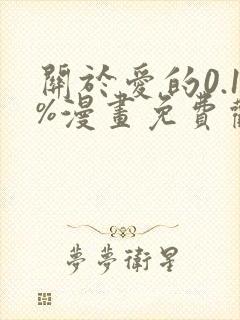 關於愛的0.1
%漫畫免費
夢夢衛星